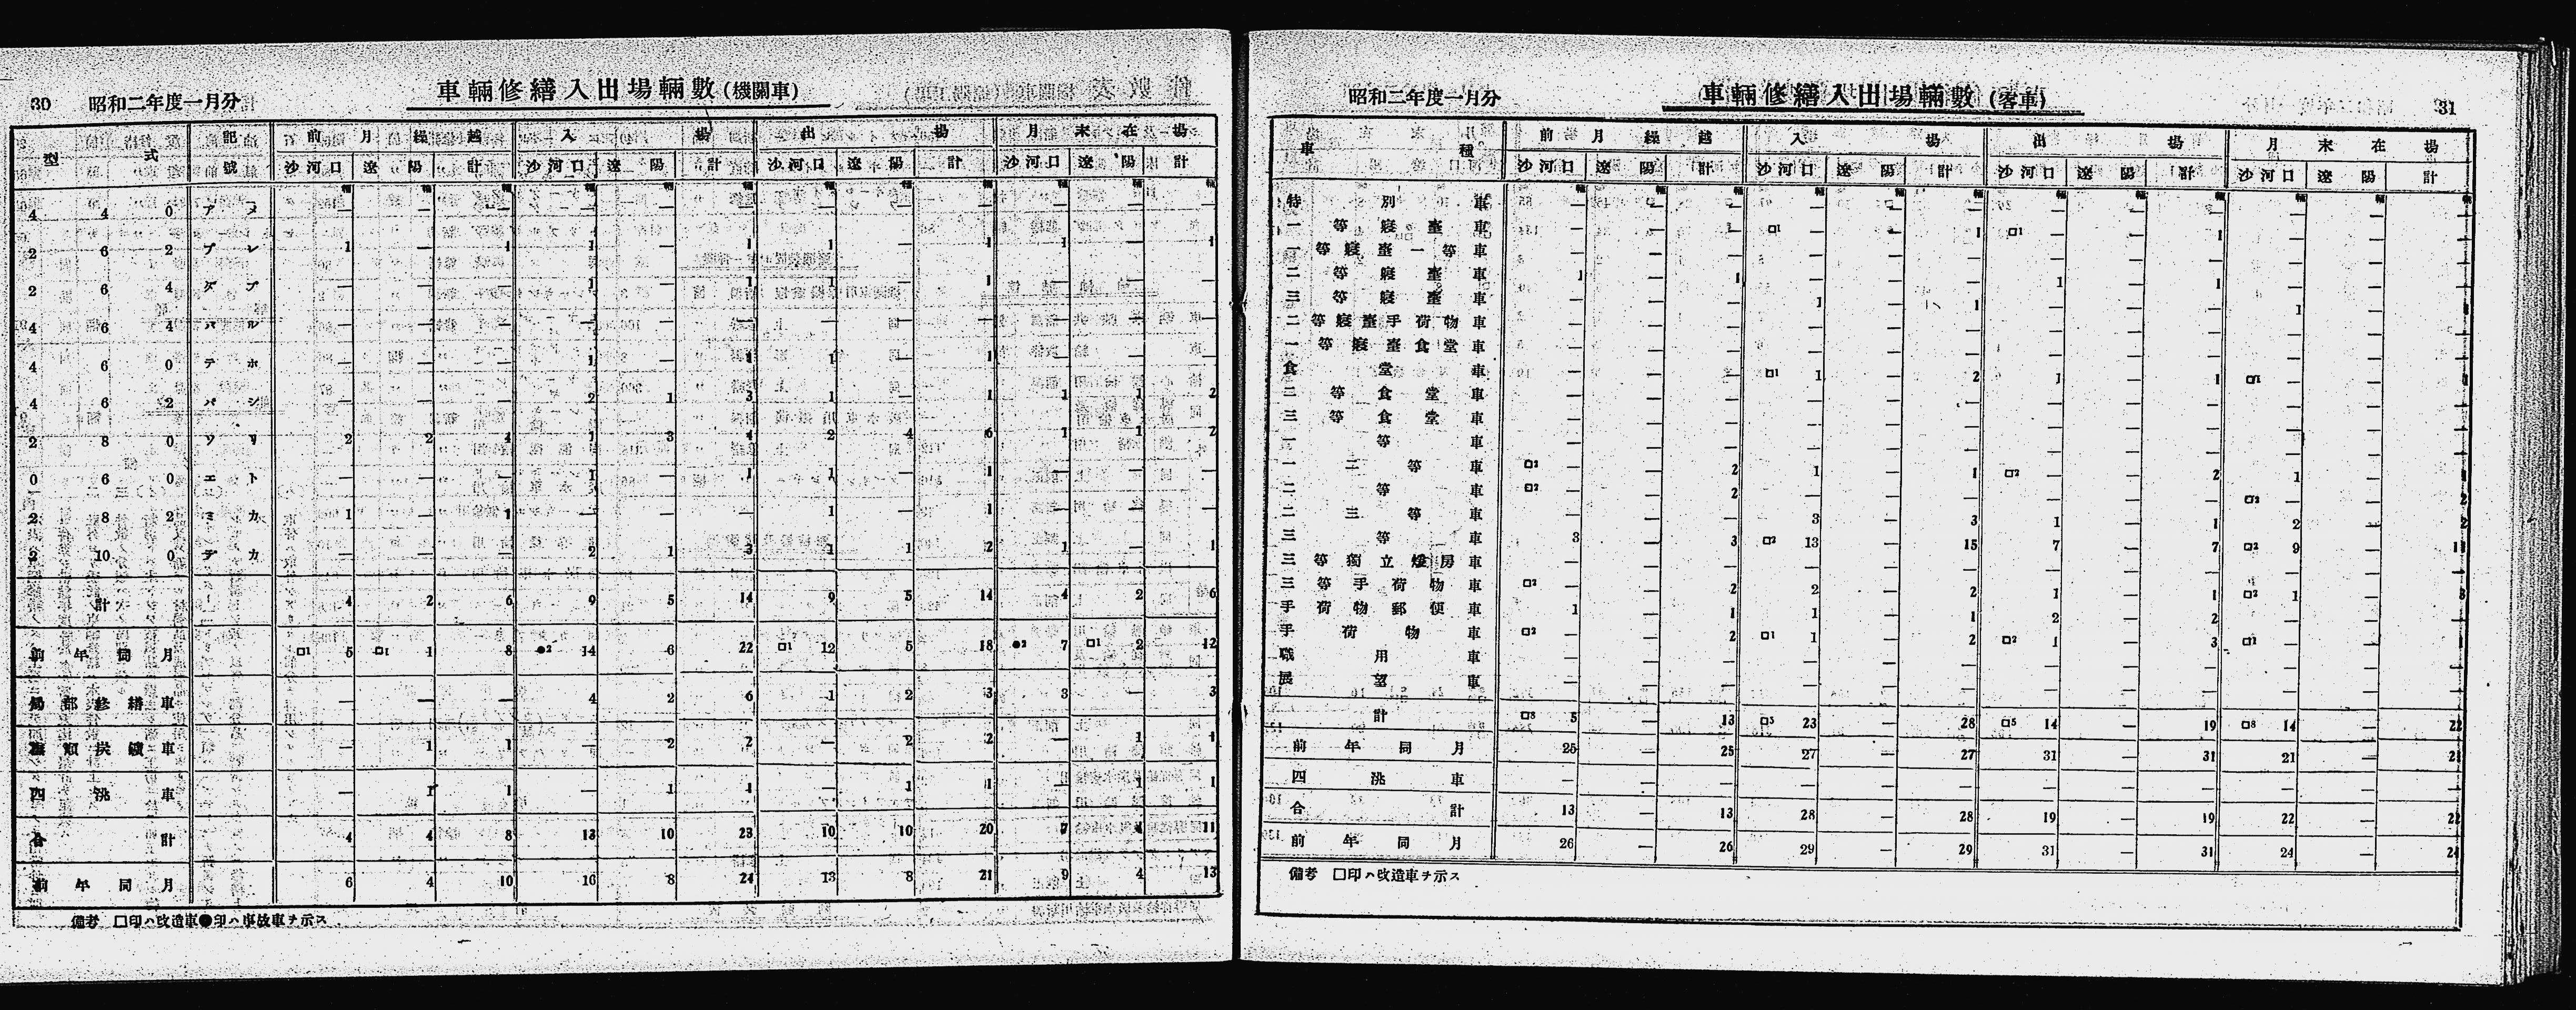 30 昭和二年度一月分 車輛修繕入出場輛數(機關車)
型式 記號 前月繰越 入場 出場 月末在場
沙河口 遼陽 計 沙河口 遼陽 計 沙河口 遼陽 計 沙河口 遼陽 計
輛 輛 輛 輛 輛 輛 輛 輛 輛 輛 輛 輛
4 4 0 アメ — — — — — — — — — — — —
2 6 2 プレ 1 — 1 1 — 1 1 — 1 1 — 1
2 6 4 ダブ — — — 1 — 1 1 — 1 — — —
4 6 4 パル — — — — — — — — — — — —
4 6 0 テホ — — — 1 — 1 1 — 1 — — —
4 6 2 パシ — — — 2 1 3 1 — 1 1 1 2
2 8 0 ソリ 2 2 4 1 3 4 2 4 6 1 1 2
0 6 0 エト — — — 1 — 1 1 — 1 — — —
2 8 2 ミカ 1 — 1 — — — 1 — 1 — — —
2 10 0 デカ — — — 2 1 3 1 1 2 1 — 1
計 4 2 6 9 5 14 9 5 14 4 2 6
前年同月 □1 5 □1 1 8 ●2 14 6 22 □1 12 5 18 ●2 7 □1 2 12
局部修繕車 — — — 4 2 6 1 2 3 3 — 3
撫順炭礦車 — 1 1 — 2 2 — 2 2 — 1 1
四洮車 — 1 1 — 1 1 — 1 1 — 1 1
合計 4 4 8 13 10 23 10 10 20 7 4 11
前年同月 6 4 10 16 8 24 13 8 21 9 4 13
備考 □印ハ改造車●印ハ事故車ヲ示ス
昭和二年度一月分 車輛修繕入出場輛數(客車) 31
車種 前月繰越 入場 出場 月末在場
沙河口 遼陽 計 沙河口 遼陽 計 沙河口 遼陽 計 沙河口 遼陽 計
輛 輛 輛 輛 輛 輛 輛 輛 輛 輛 輛 輛
特別車 — — — — — — — — — — — —
一等寢臺車 — — — □1 — 1 □1 — 1 — — —
一等寢臺一等車 — — — — — — — — — — — —
二等寢臺車 1 — 1 — — — 1 — 1 — — —
三等寢臺車 — — — 1 — 1 — — — 1 — 1
二等寢臺手荷物車 — — — — — — — — — — — —
一等寢臺食堂車 — — — — — — — — — — — —
食堂車 — — — □1 1 — 2 1 — 1 □1 — — 1
二等食堂車 — — — — — — — — — — — —
三等食堂車 — — — — — — — — — — — —
一等車 — — — — — — — — — — — —
一二等車 □2 — — 2 1 — 1 □2 — — 2 1 — 1
二等車 □2 — — 2 — — — — — — □2 — — 2
二三等車 — — — 3 — 3 1 — 1 2 — 2
三等車 3 — 3 □2 13 — 15 7 — 7 □2 9 — 11
三等獨立煖房車 — — — — — — — — — — — —
三等手荷物車 □2 — — 2 2 — 2 1 — 1 □2 1 — 3
手荷物郵便車 1 — 1 1 — 1 2 — 2 — — —
手荷物車 □2 — — 2 □1 1 — 2 □2 1 — 3 □1 — — 1
職用車 — — — — — — — — — — — —
展望車 — — — — — — — — — — — —
計 □8 5 — 13 □5 23 — 28 □5 14 — 19 □8 14 — 22
前年同月 25 — 25 27 — 27 31 — 31 21 — 21
四洮車 — — — — — — — — — — — —
合計 13 — 13 28 — 28 19 — 19 22 — 22
前年同月 26 — 26 29 — 29 31 — 31 24 — 24
備考 □印ハ改造車ヲ示ス